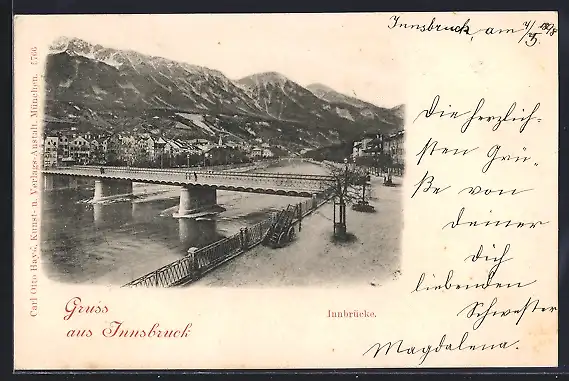 Innsbruck, am
Die herzlich-
sten Grüs-
se von
deiner
Dich
liebenden
Schwester
Magdalena.
Gruss
aus Innsbruck
Innbrücke.
Carl Otto Hayd, Kunst- u. Verlags-Anstalt, München. 5766